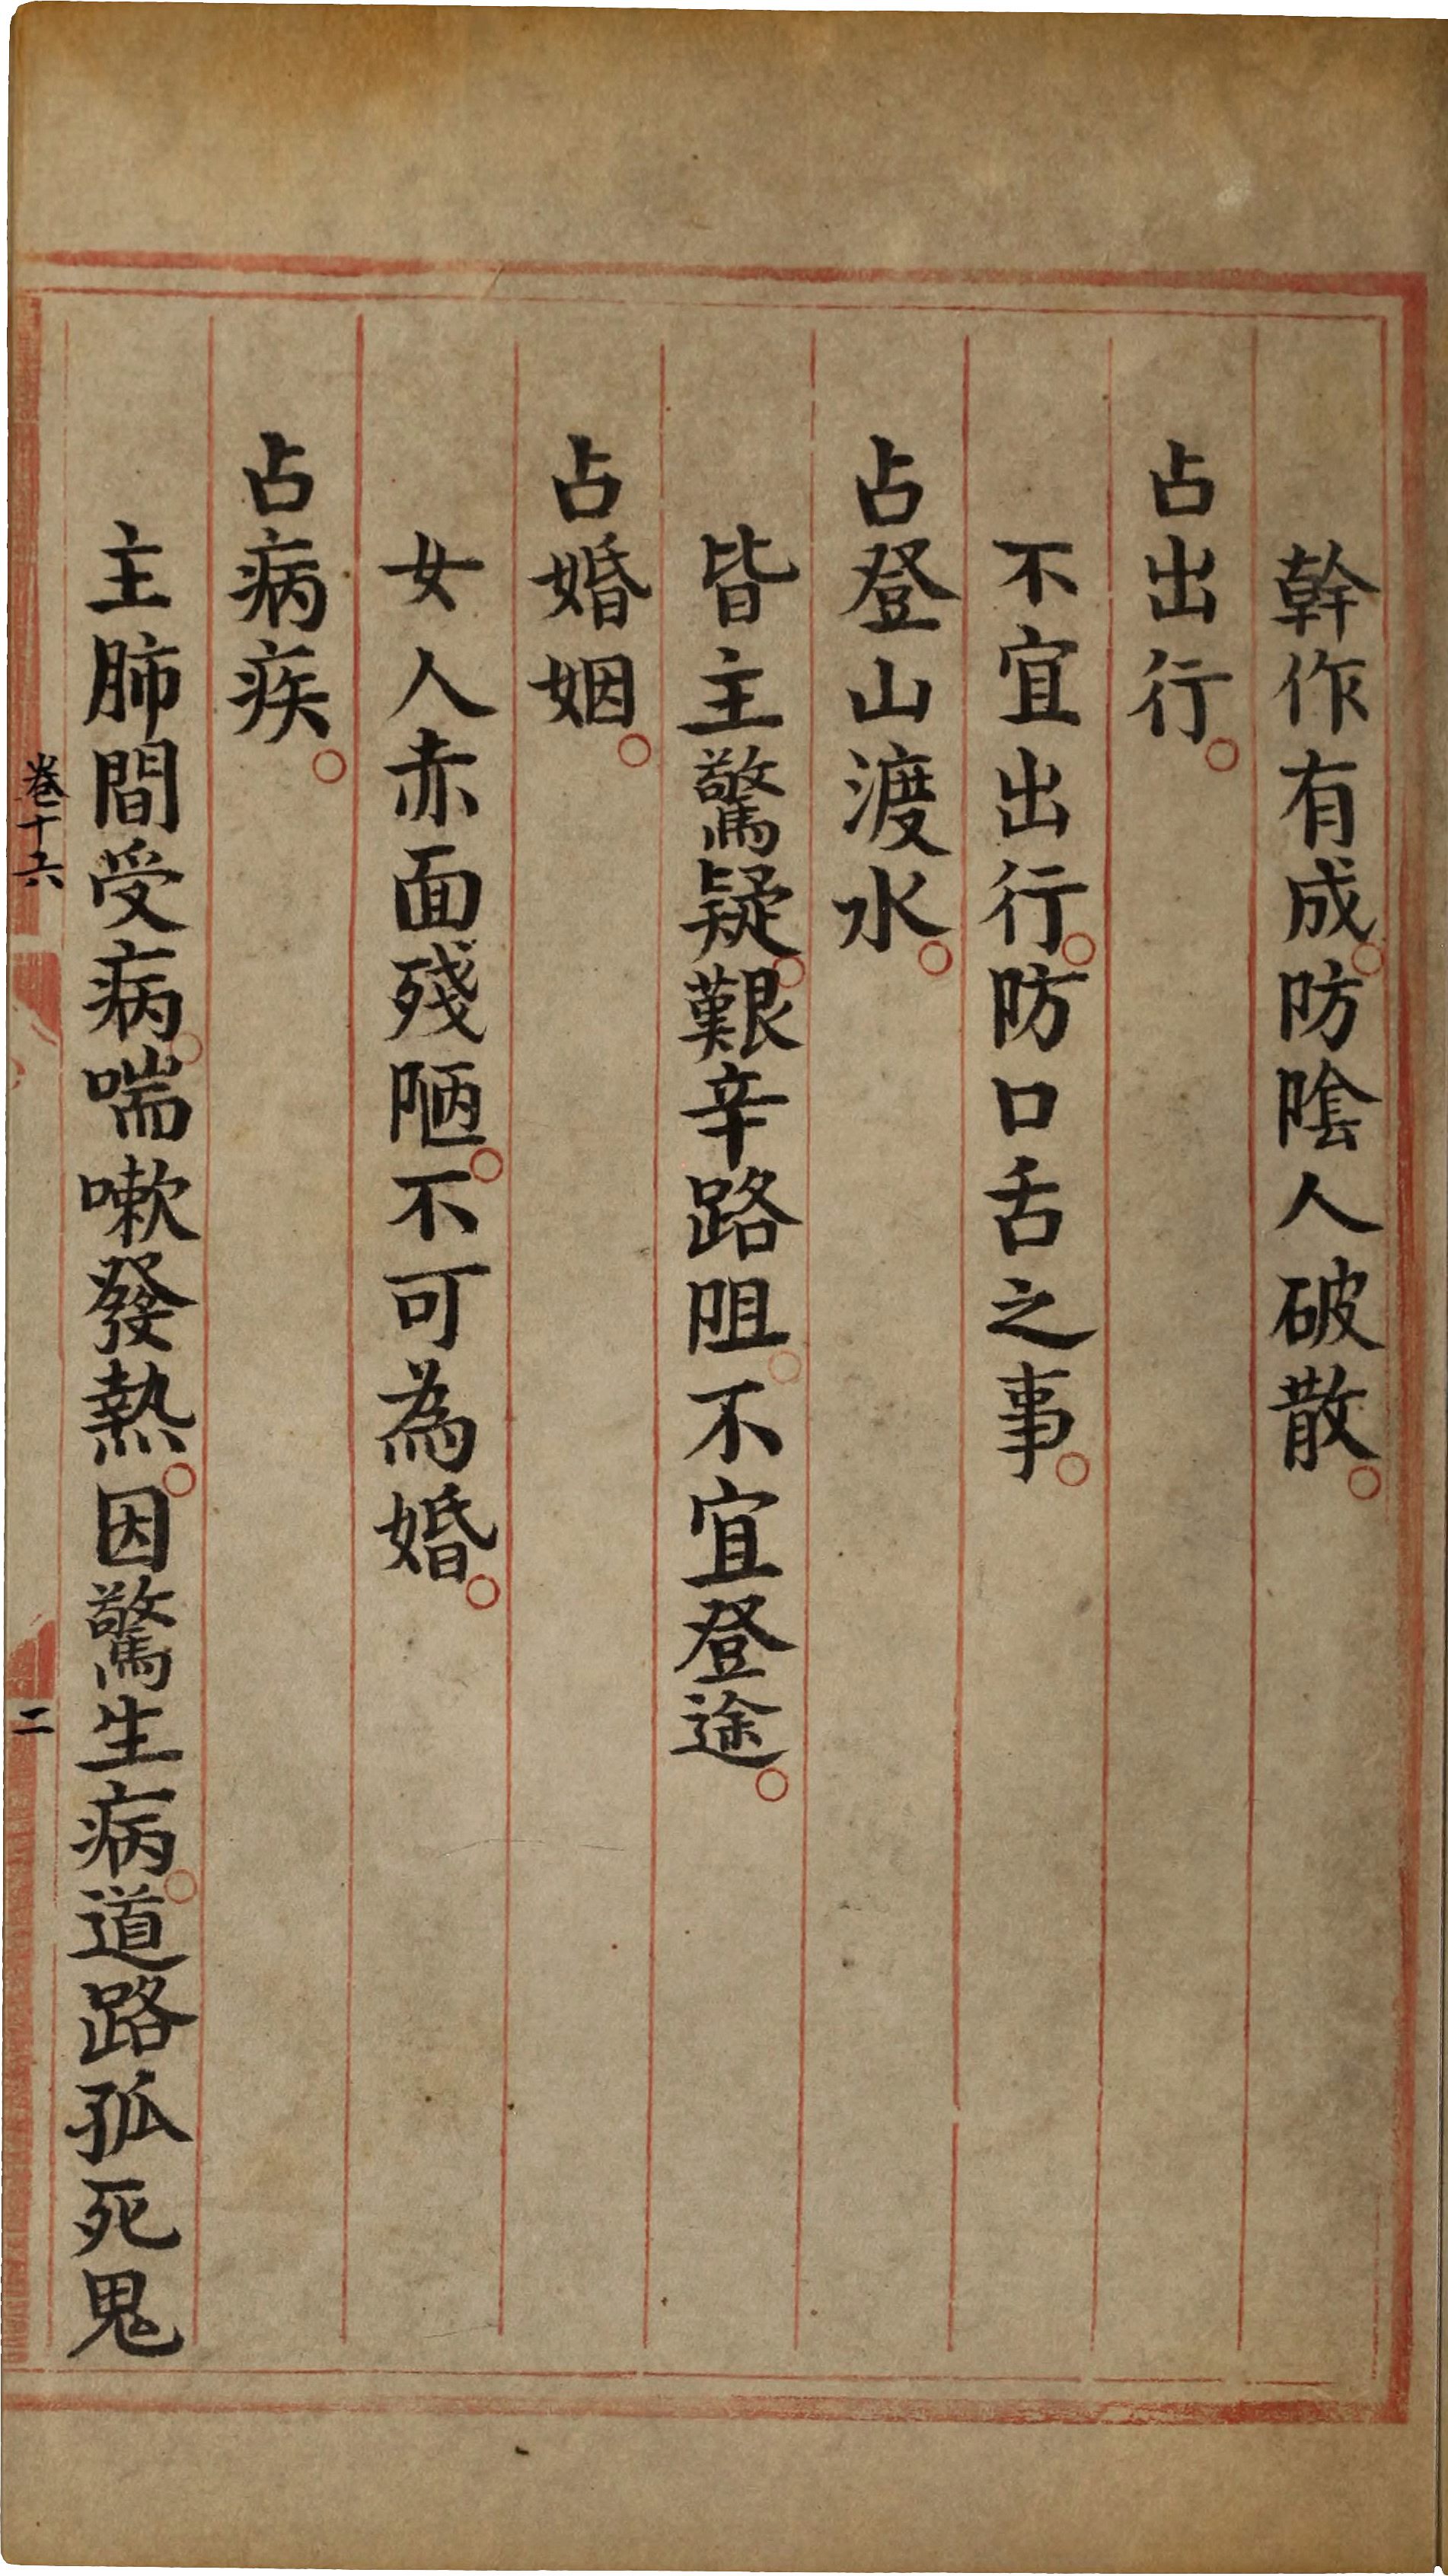 幹作有成○防陰人破散○
占出行○
不宜出行○防口舌之事○
占登山渡水○
皆主驚疑○艱辛路阻○不宜登途○
占婚姻○
女人赤面殘陋○不可為婚○
占病疾○
主肺間受病○喘嗽發熱○因驚生病○道路孤死鬼
卷十六
二